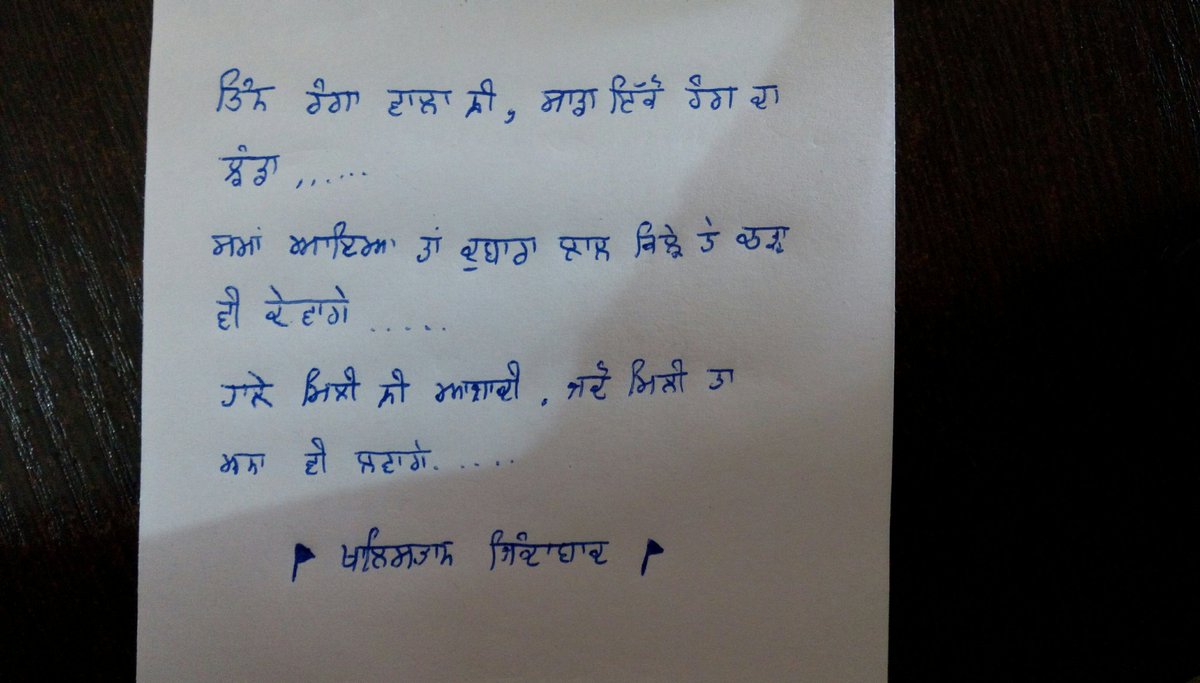 ਤਿੰਨ ਰੰਗਾ ਵਾਲਾ ਨੀ, ਸਾਡਾ ਇੱਕੋ ਰੰਗ ਦਾ
ਝੰਡਾ ,......
ਸਮਾਂ ਆਇਆ ਤਾਂ ਦੁਬਾਰਾ ਲਾਲ ਕਿਲ੍ਹੇ ਤੇ ਚੜ੍ਹਾ
ਵੀ ਦੇਵਾਂਗੇ ......
ਹਾਲੇ ਮਿਲੀ ਨੀ ਆਜ਼ਾਦੀ, ਜਦੋਂ ਮਿਲੀ ਤਾ
ਮਨਾ ਵੀ ਲਵਾਗੇ. ....
ਖਾਲਿਸਤਾਨ ਜਿੰਦਾਬਾਦ